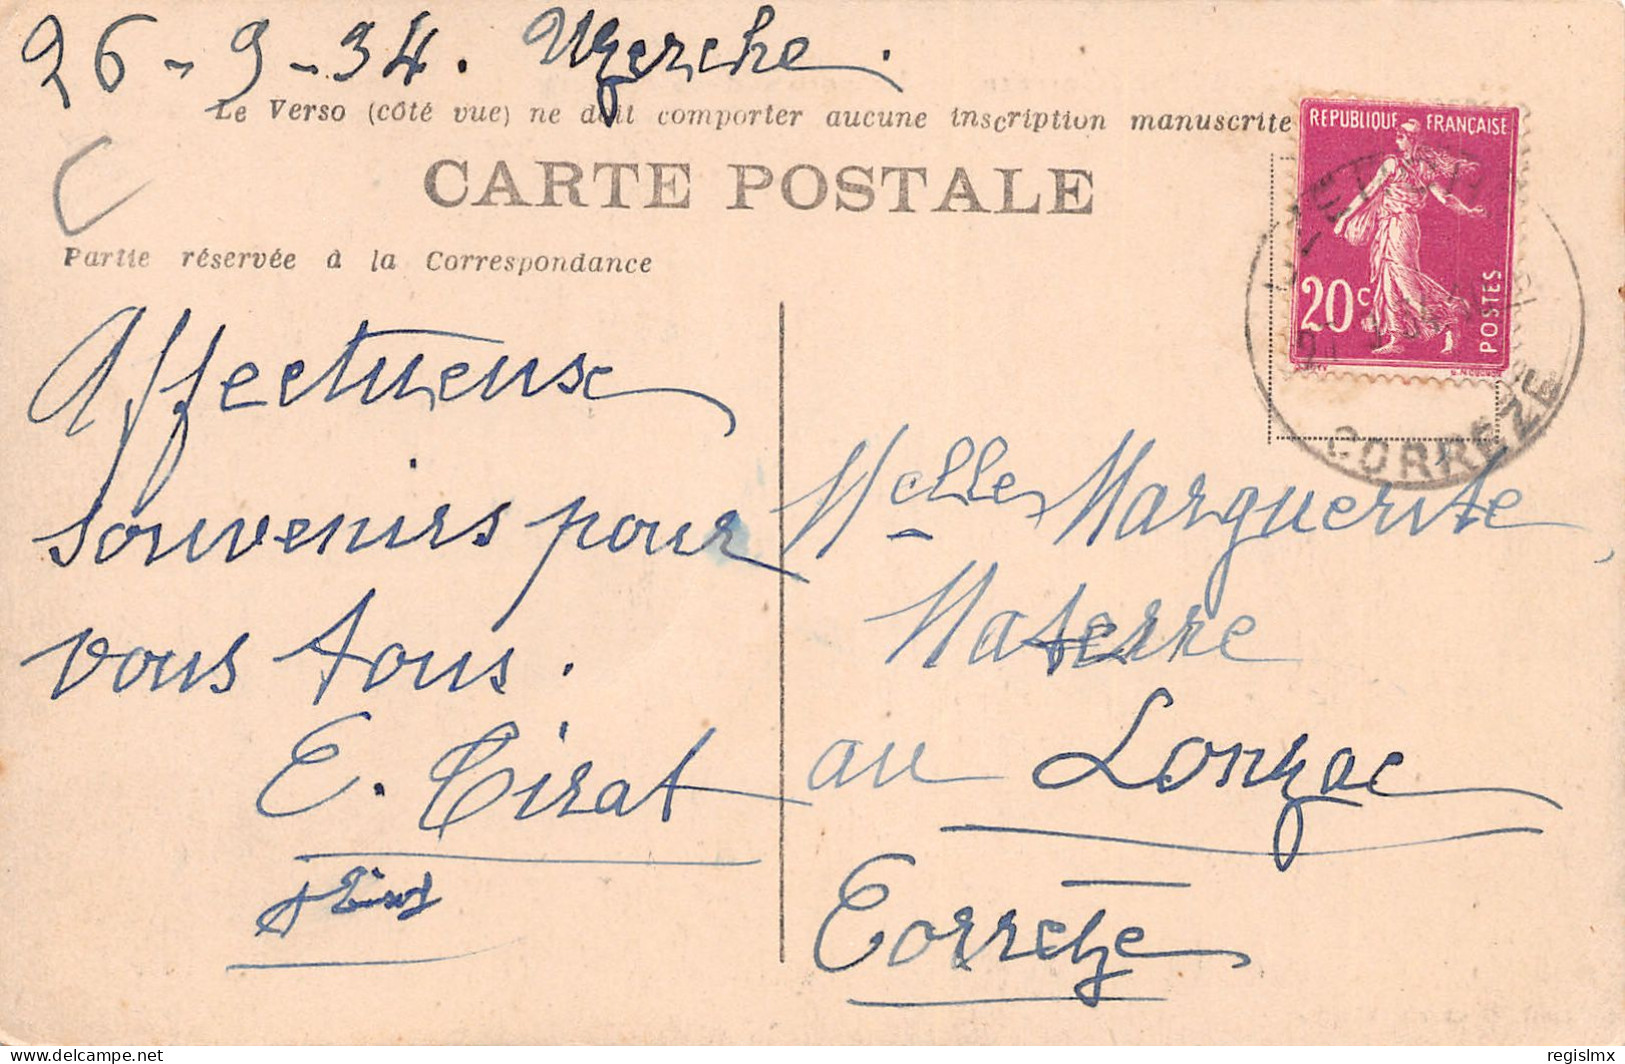 26-9-34. Uzerche.
Le Verso (côté vue) ne doit comporter aucune inscription manuscrite
CARTE POSTALE
Partie réservée à la Correspondance
REPUBLIQUE FRANÇAISE
20c
POSTES
CORRÈZE
Affectueux
souvenirs pour
vous tous.
E. Tirat
Melle Marguerite
Materre
au Lonzac
Corrèze
delcampe.net
regislmx